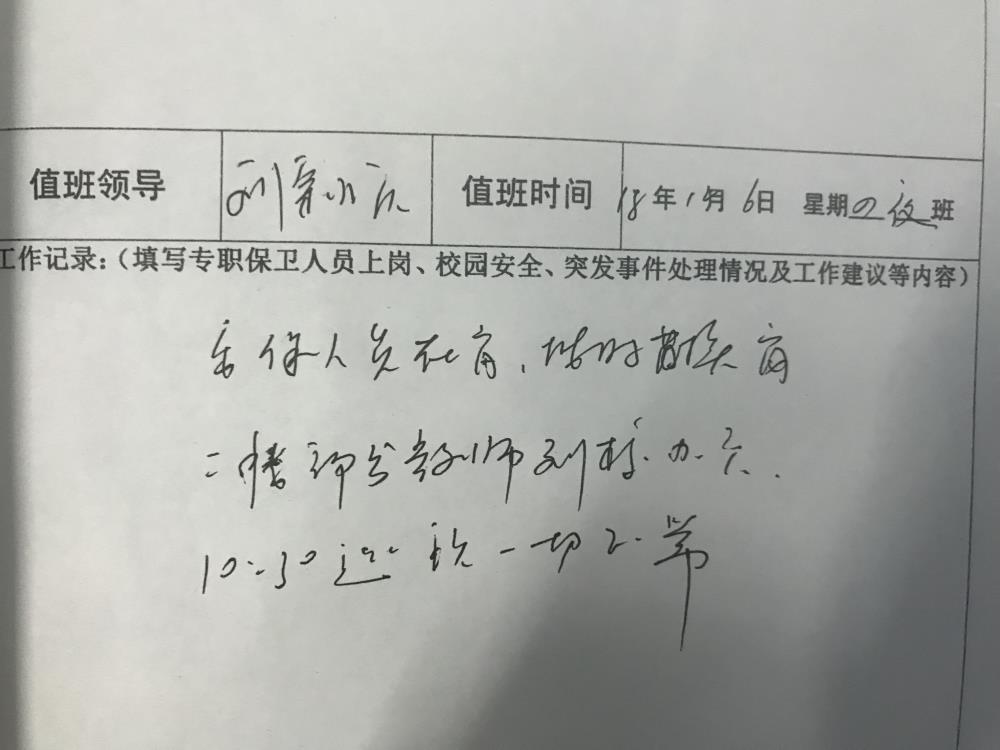 值班领导 刘 值班时间 18年1月6日 星期四夜班
工作记录：（填写专职保卫人员上岗、校园安全、突发事件处理情况及工作建议等内容）
安保人员在岗，按时
二 部分教师到校办公.
10:30 一切正常